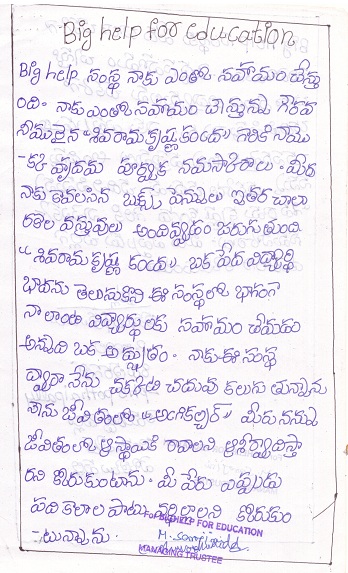 Big help for education
Big help సంస్థ నాకు ఎంతో సహాయం చేస్తు
ంది. నాకు ఎంతో సహాయం చేస్తున్న గౌరవ
నీయులైన "శివరామకృష్ణ కందు" గారికి నాయొ
-క్క హృదయ పూర్వక నమస్కారాలు. మీరు
నాకు కావలసిన బుక్స్ పెన్నులు ఇతర చాలా
రకాల వస్తువులు అందివ్వడం జరుగుతుంది
"శివరామకృష్ణ కందు" ఒక పేద విద్యార్థి
బాధను తెలుసుకొని ఈ సంస్థలో భాగంగా
నాలాంటి విద్యార్థులకు సహాయం చేయడం
అన్నది ఒక అద్భుతం. నాకు ఈ సంస్థ
ద్వారా నేను చక్కటి చదువు కలుగుతున్నాను
నాను జీవితంలో మీరు నన్ను
జీవితంలో ఆ స్థాయికి రావాలని ఆశీర్వాదిస్తా
రని కోరుకుంటాను. మీ పేరు ఎప్పుడు
పది కలాల పాటు వర్ధిల్లాలని కోరుకుం
-టున్నాను.
For BIG HELP FOR EDUCATION
MANAGING TRUSTEE